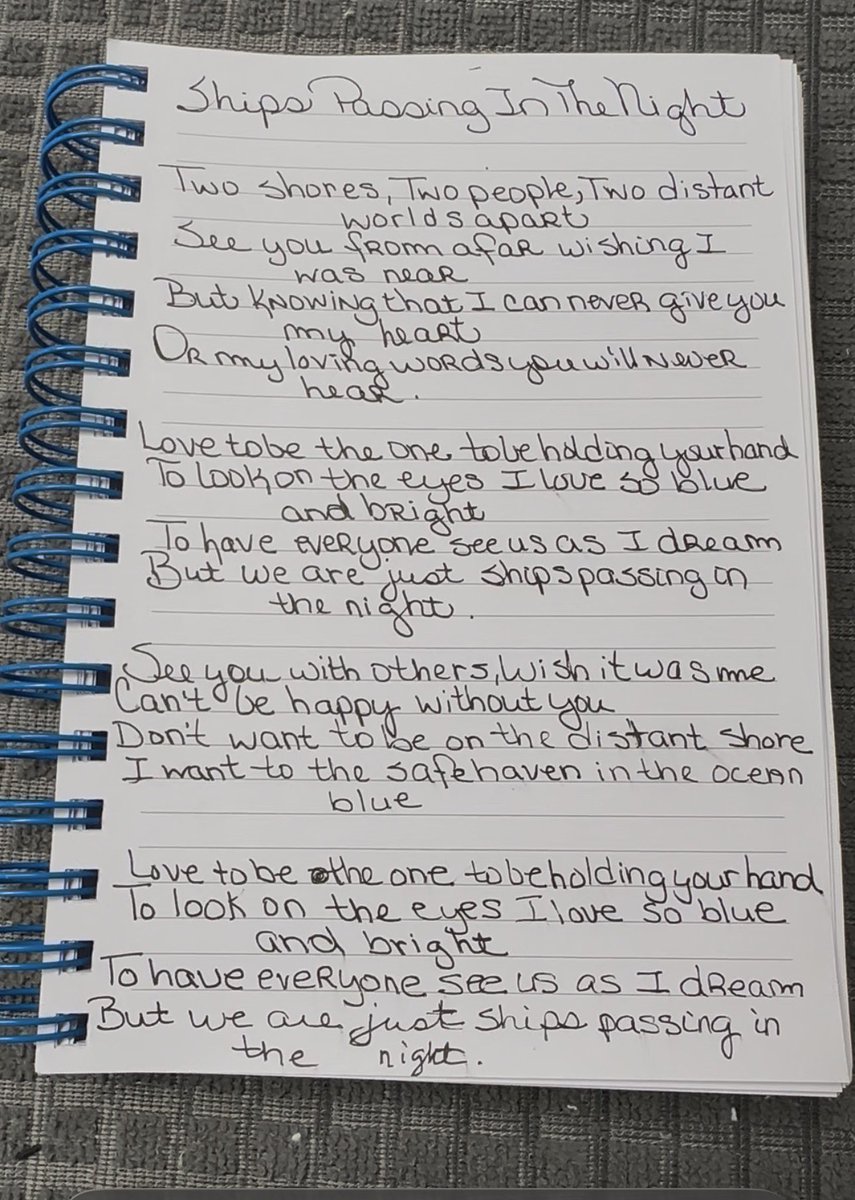 Ships Passing In The Night
Two shores, Two people, Two distant
worlds apart
See you from afar wishing I
was near
But knowing that I can never give you
my heart
Or my loving words you will never
hear.
Love to be the one to be holding your hand
To look on the eyes I love so blue
and bright
To have everyone see us as I dream
But we are just ships passing in
the night.
See you with others, wish it was me
Can't be happy without you
Don't want to be on the distant shore
I want to the safe haven in the ocean
blue
Love to be the one to be holding your hand
To look on the eyes I love so blue
and bright
To have everyone see us as I dream
But we are just ships passing in
the night.